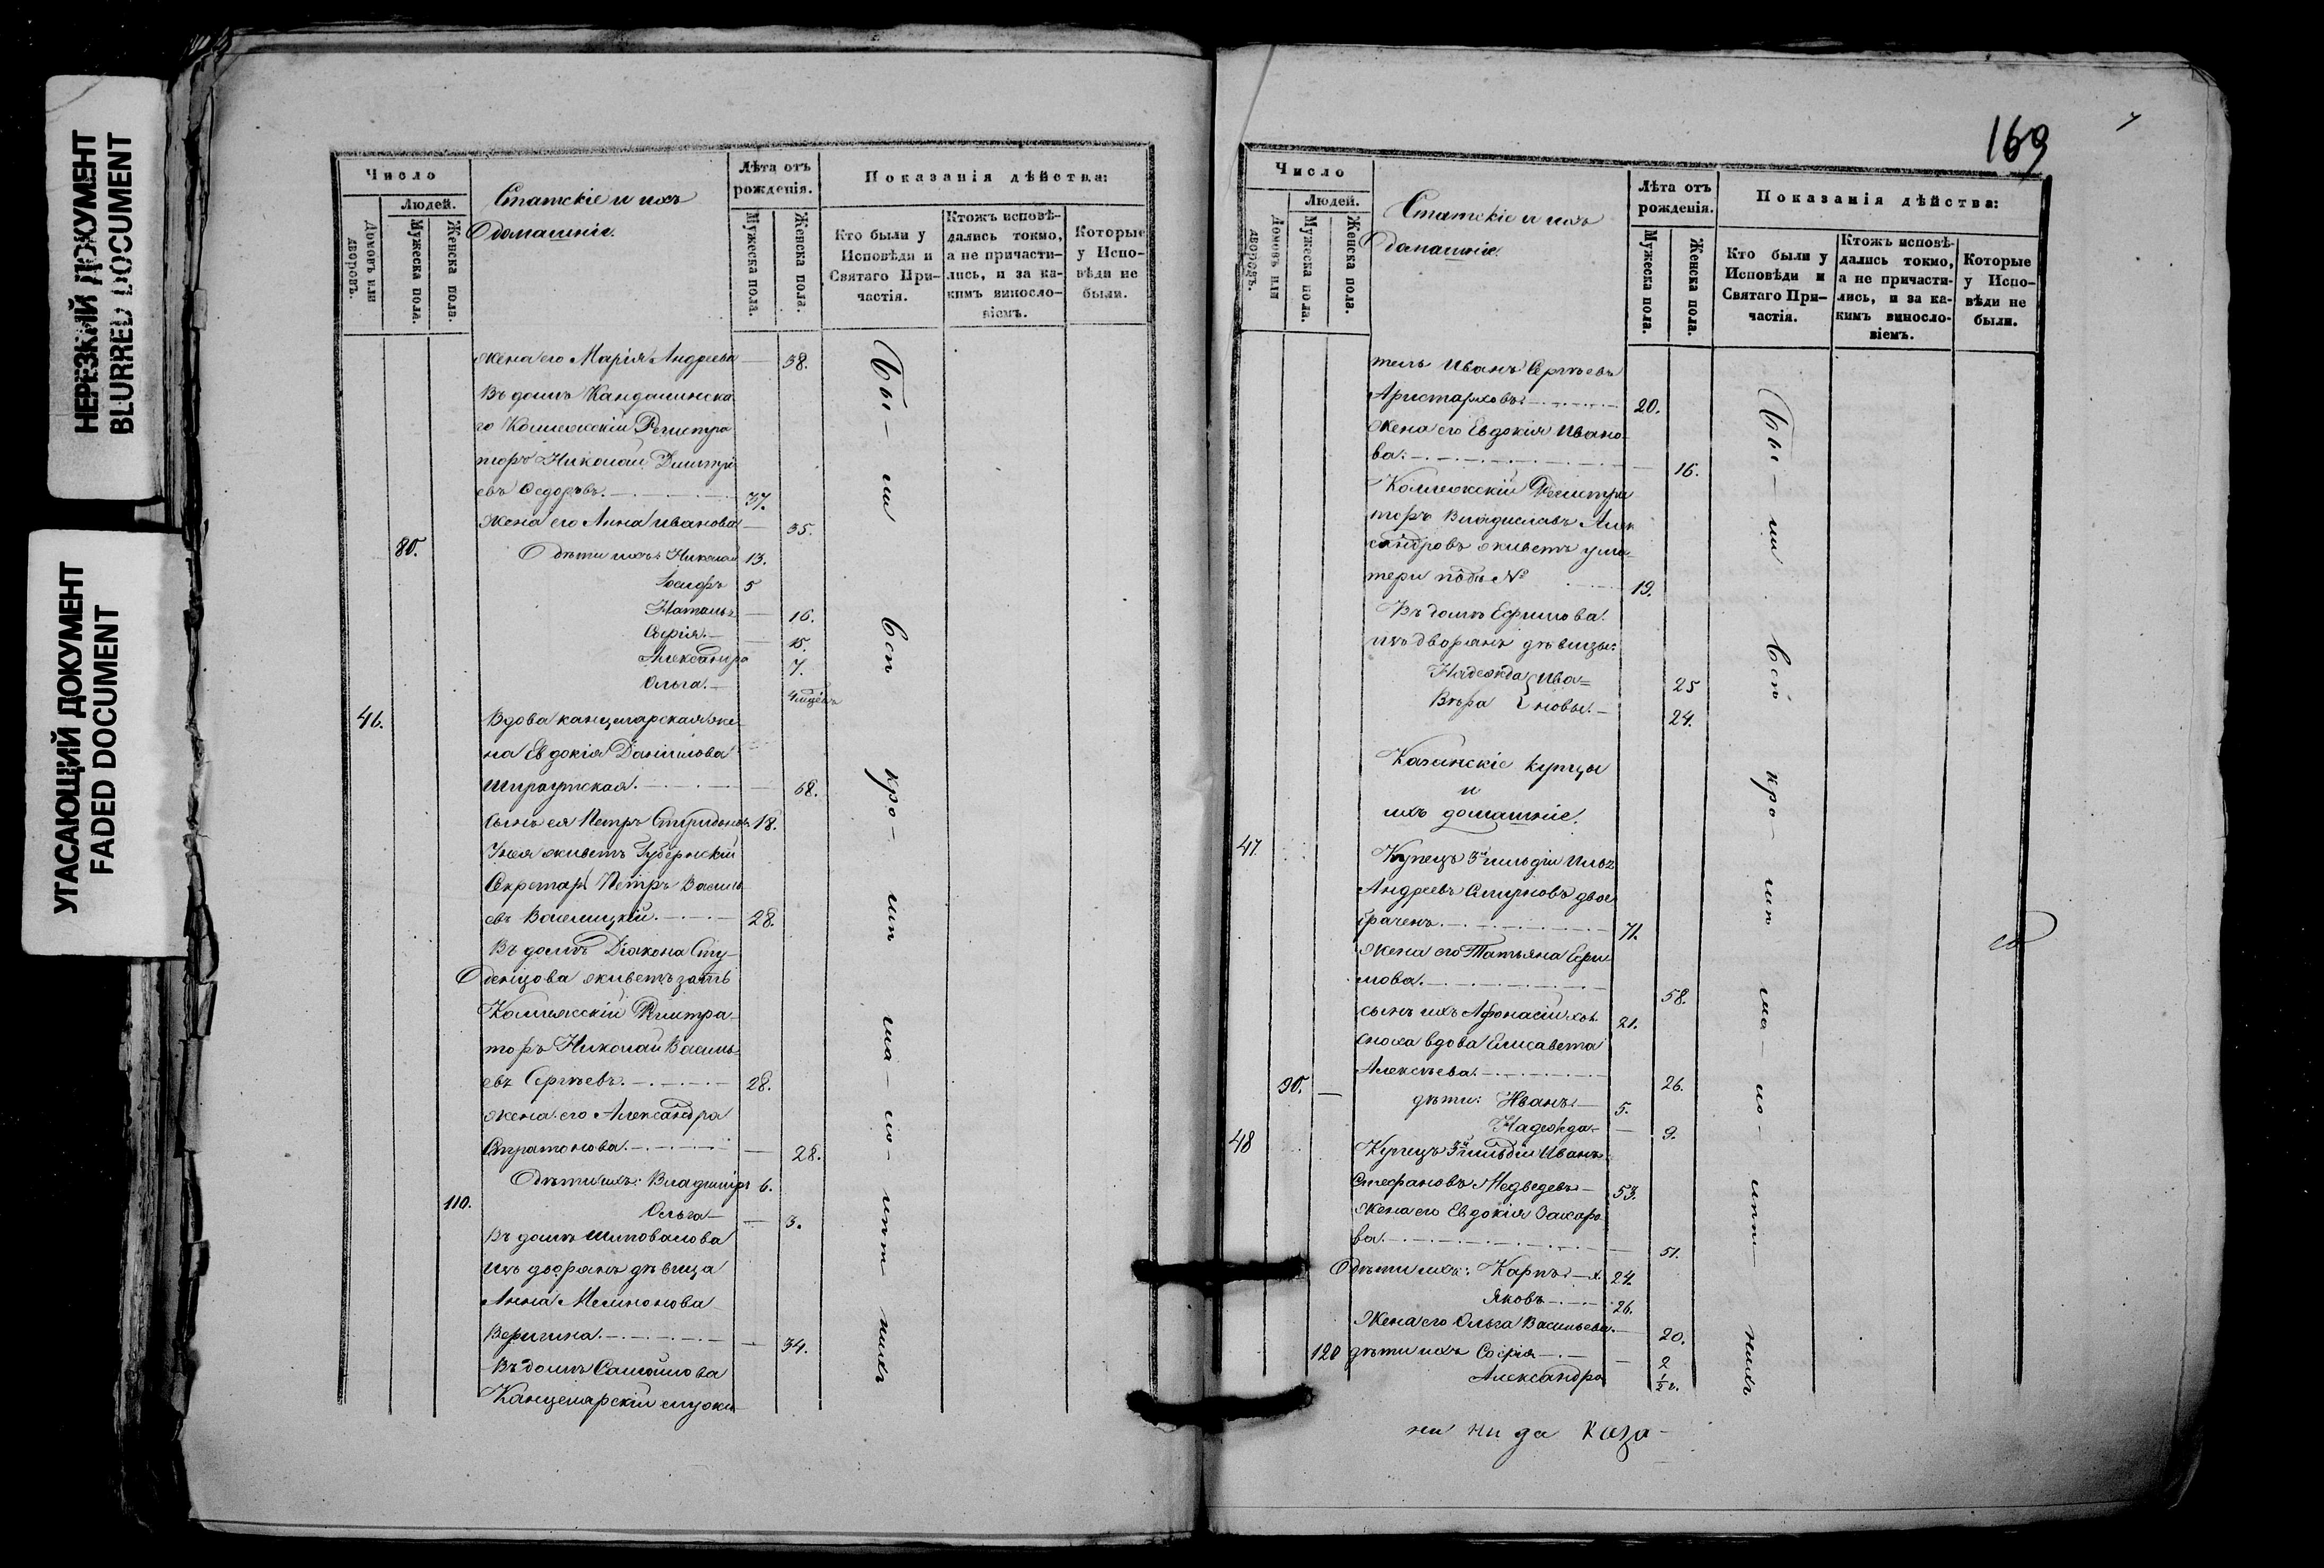 НЕРЕЗКИЙ ДОКУМЕНТ
BLURRED DOCUMENT
УГАСАЮЩИЙ ДОКУМЕНТ
FADED DOCUMENT
Число
Людей.
Домовъ или дворовъ.
Мужеска пола.
Женска пола.
Статскіе и ихъ
домашніе.
Лѣта отъ рожденія.
Мужеска пола.
Женска пола.
Показанія дѣйства:
Кто были у Исповѣди и Святаго При-
частія.
Ктожъ исповѣ-
дались токмо,
а не причасти-
лись, и за ка-
кимъ винос­ло-
віемъ.
Которые
у Испо-
вѣди не
были.
жена его Марія Андреева — 38.
Въ домѣ
го Коллежскій Регистра
торъ Николай Дмитрі
евъ Федоровъ. 37.
жена его Анна Иванова — 35.
80. дѣти ихъ: Николай 13.
Іосифъ 5
Наталья — 16.
Софія. — 15.
Александра 7.
Ольга. —
46. Вдова канцелярская же-
на Евдокія Данилова
58.
сынъ ея Петръ Спиридоновъ 18.
У нея живетъ Губернскій
Секретарь Петръ Василь
евъ 28.
Въ домѣ Діакона Сту-
денцова живетъ зять
Коллежскій Регистра-
торъ Николай Василь-
евъ Сергѣевъ. 28.
жена его Александра
Стратонова. — 28.
дѣти ихъ: Владиміръ 6.
110. Ольга — 3.
Въ домѣ Шиповалова
изъ дворянъ дѣвица
Анна
Веригина. — 34.
Въ домѣ Самойлова
Канцелярскій служи-
Бы-ли всѣ кро- мѣ ма-лo-лѣт нихъ
169
Число
Людей.
Домовъ или дворовъ.
Мужеска пола.
Женска пола.
Статскіе и ихъ
домашніе.
Лѣта отъ рожденія.
Мужеска пола.
Женска пола.
Показанія дѣйства:
Кто были у
Исповѣди и
Святаго При-
частія.
Ктожъ исповѣ-
дались токмо,
а не причасти-
лись, и за ка-
кимъ винос­ло-
віемъ.
Которые
у Испо-
вѣди не
были.
тель Иванъ Сергѣевъ
Аристарховъ. 20.
жена его Евдокія Ивано-
ва. 16.
Коллежскій Регистра
торъ Владиславъ Алек
сандровъ живетъ у ма-
тери подъ № 19.
Въ домѣ Ефимова.
изъ дворянъ дѣвицы:
Надежда Ива= 25
Вѣра новы. — 24.
Казанскіе купцы
и
ихъ домашніе.
47. Купецъ 3й гильдіи Илья
Андреевъ Смирновъ двое
браченъ. 71.
жена его Татьяна Ефи
мова. 58.
сынъ ихъ Афонасій хол. 21.
сноха вдова Елисавета
Алексѣева. 26.
90. — дѣти: Иванъ — 5.
Надежда — 9.
48 Купецъ 3й гильдіи Иванъ
Стефановъ Медведевъ — 53.
жена его Евдокія Захаро
ва. 51.
дѣти ихъ: Карпъ — х. 24.
Яковъ 26.
Жена его Ольга Васильева. 20.
120 дѣти ихъ Софія — 2
Александра ½ г.
Бы-ли всѣ кро- мѣ ма-ло-лѣт- нихъ